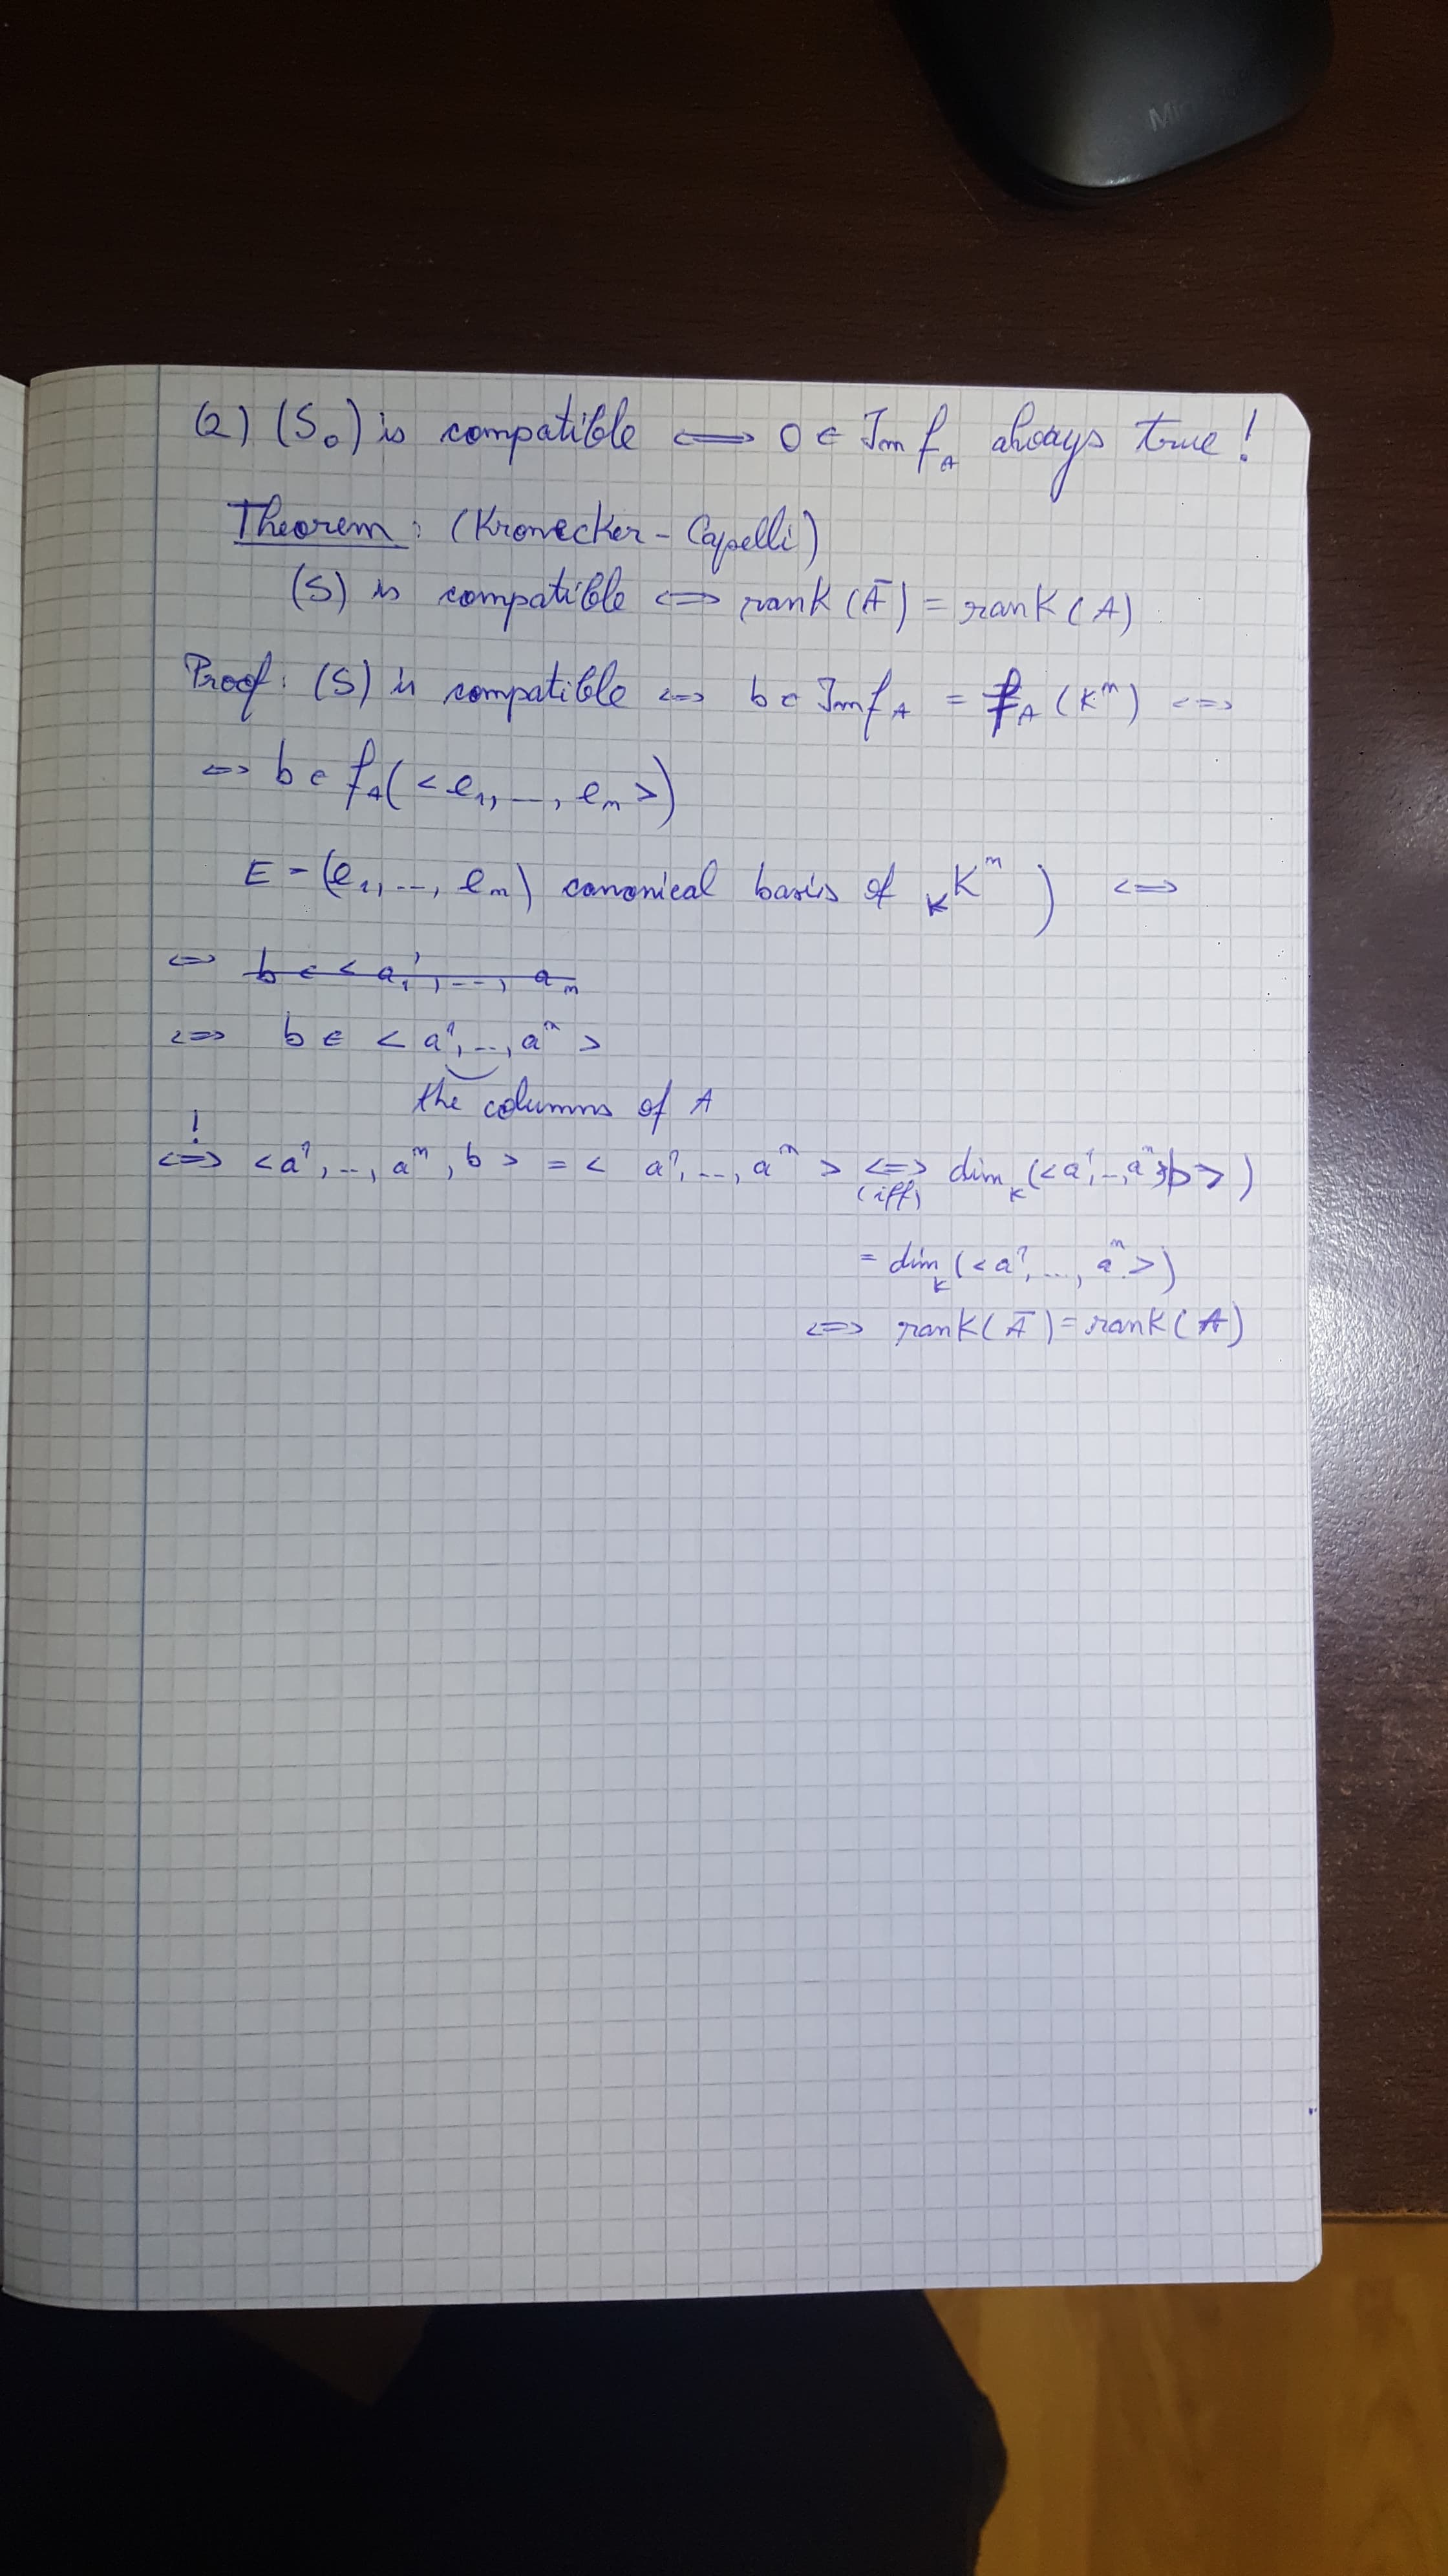 (2) (S₀) is compatible ⟺ 0 ∈ Im f_A always true!
Theorem: (Kronecker - Capelli)
(S) is compatible ⟺ rank (Ā) = rank (A)
Proof: (S) is compatible ⟺ b ∈ Im f_A = f_A (Kⁿ) ⟺
⟺ b ∈ f_A(<e₁, ..., eₙ>)
E = (e₁, ..., eₙ) canonical basis of _K Kⁿ) ⟺
⟺ b ∈ < a¹, ..., aₙ
⟺ b ∈ < a¹, ..., aⁿ >
the columns of A
!
⟺ <a¹, ..., aⁿ, b > = < a¹, ..., aⁿ > ⟺ dim_K (<a¹, .., aⁿ, b >)
(iff)
= dim_K (<a¹, ..., aⁿ >)
⟺ rank (Ā) = rank (A)